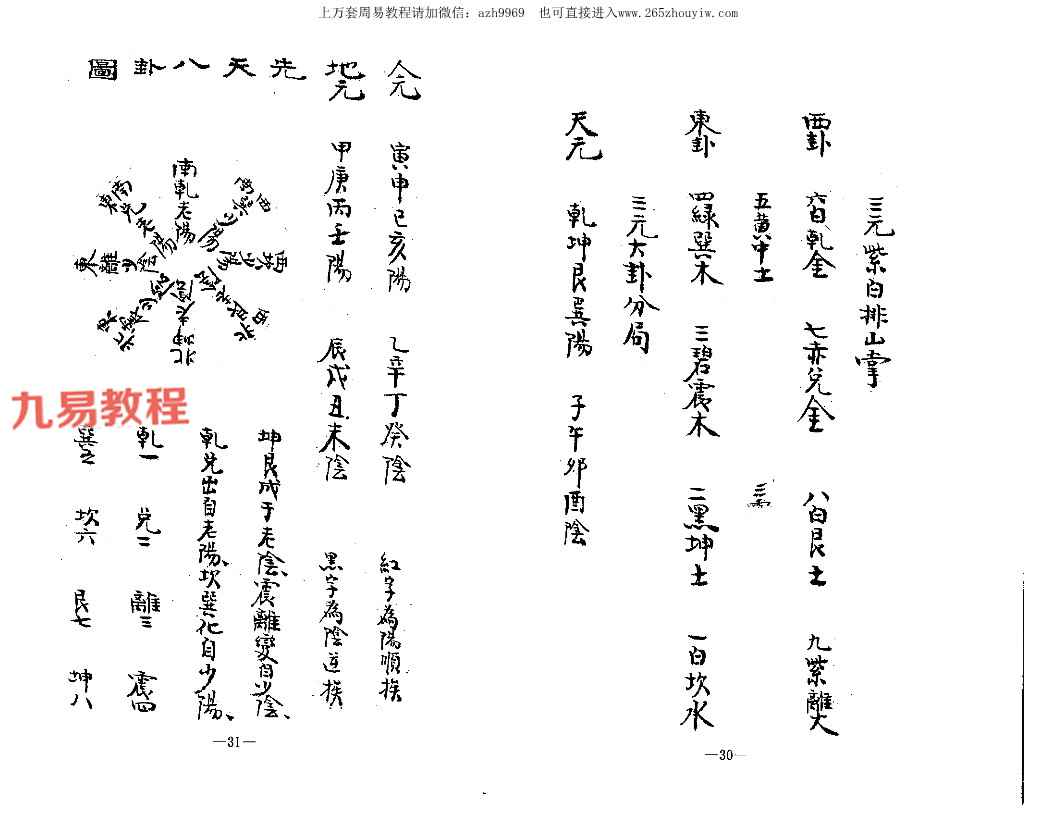 上万套周易教程请加微信：azh9969 也可直接进入www.265zhouyiw.com
三元紫白排山掌
西卦 六白乾金 七赤兌金 八白艮土 九紫離火
五黃中土
東卦 四綠巽木 三碧震木 二黑坤土 一白坎水
三元大卦分局
天元 乾坤艮巽陽 子午卯酉陰
—30—
人元 寅申巳亥陽 乙辛丁癸陰 紅字為陽順挨
地元 甲庚丙壬陽 辰戌丑未陰 黑字為陰逆挨
先天八卦圖
南乾老陽
東南兌老陽
東離少陰
東北震少陰
北坤老陰
西北艮老陰
西坎少陽
西南巽少陽
坤艮成于老陰、震離變自少陰、
乾兌出自老陽、坎巽化自少陽、
乾一 兌二 離三 震四
巽五 坎六 艮七 坤八
—31—
九易教程